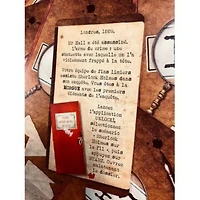 Londres, 1889.
Mr Hall a été assassiné.
L'arme du crime : une
avec laquelle on l'a
violemment frappé à la tête.
Votre équipe de fins limiers
assiste Sherlock Holmes dans
son enquête. Vous êtes à la
MORGUE avec les premiers
éléments de l'enquête.
Lancez
l'application
sélectionnez
le scénario
« Sherlock
Holmes sur
le fil » puis
appuyez sur
START. Ouvrez
maintenant
le dossier.